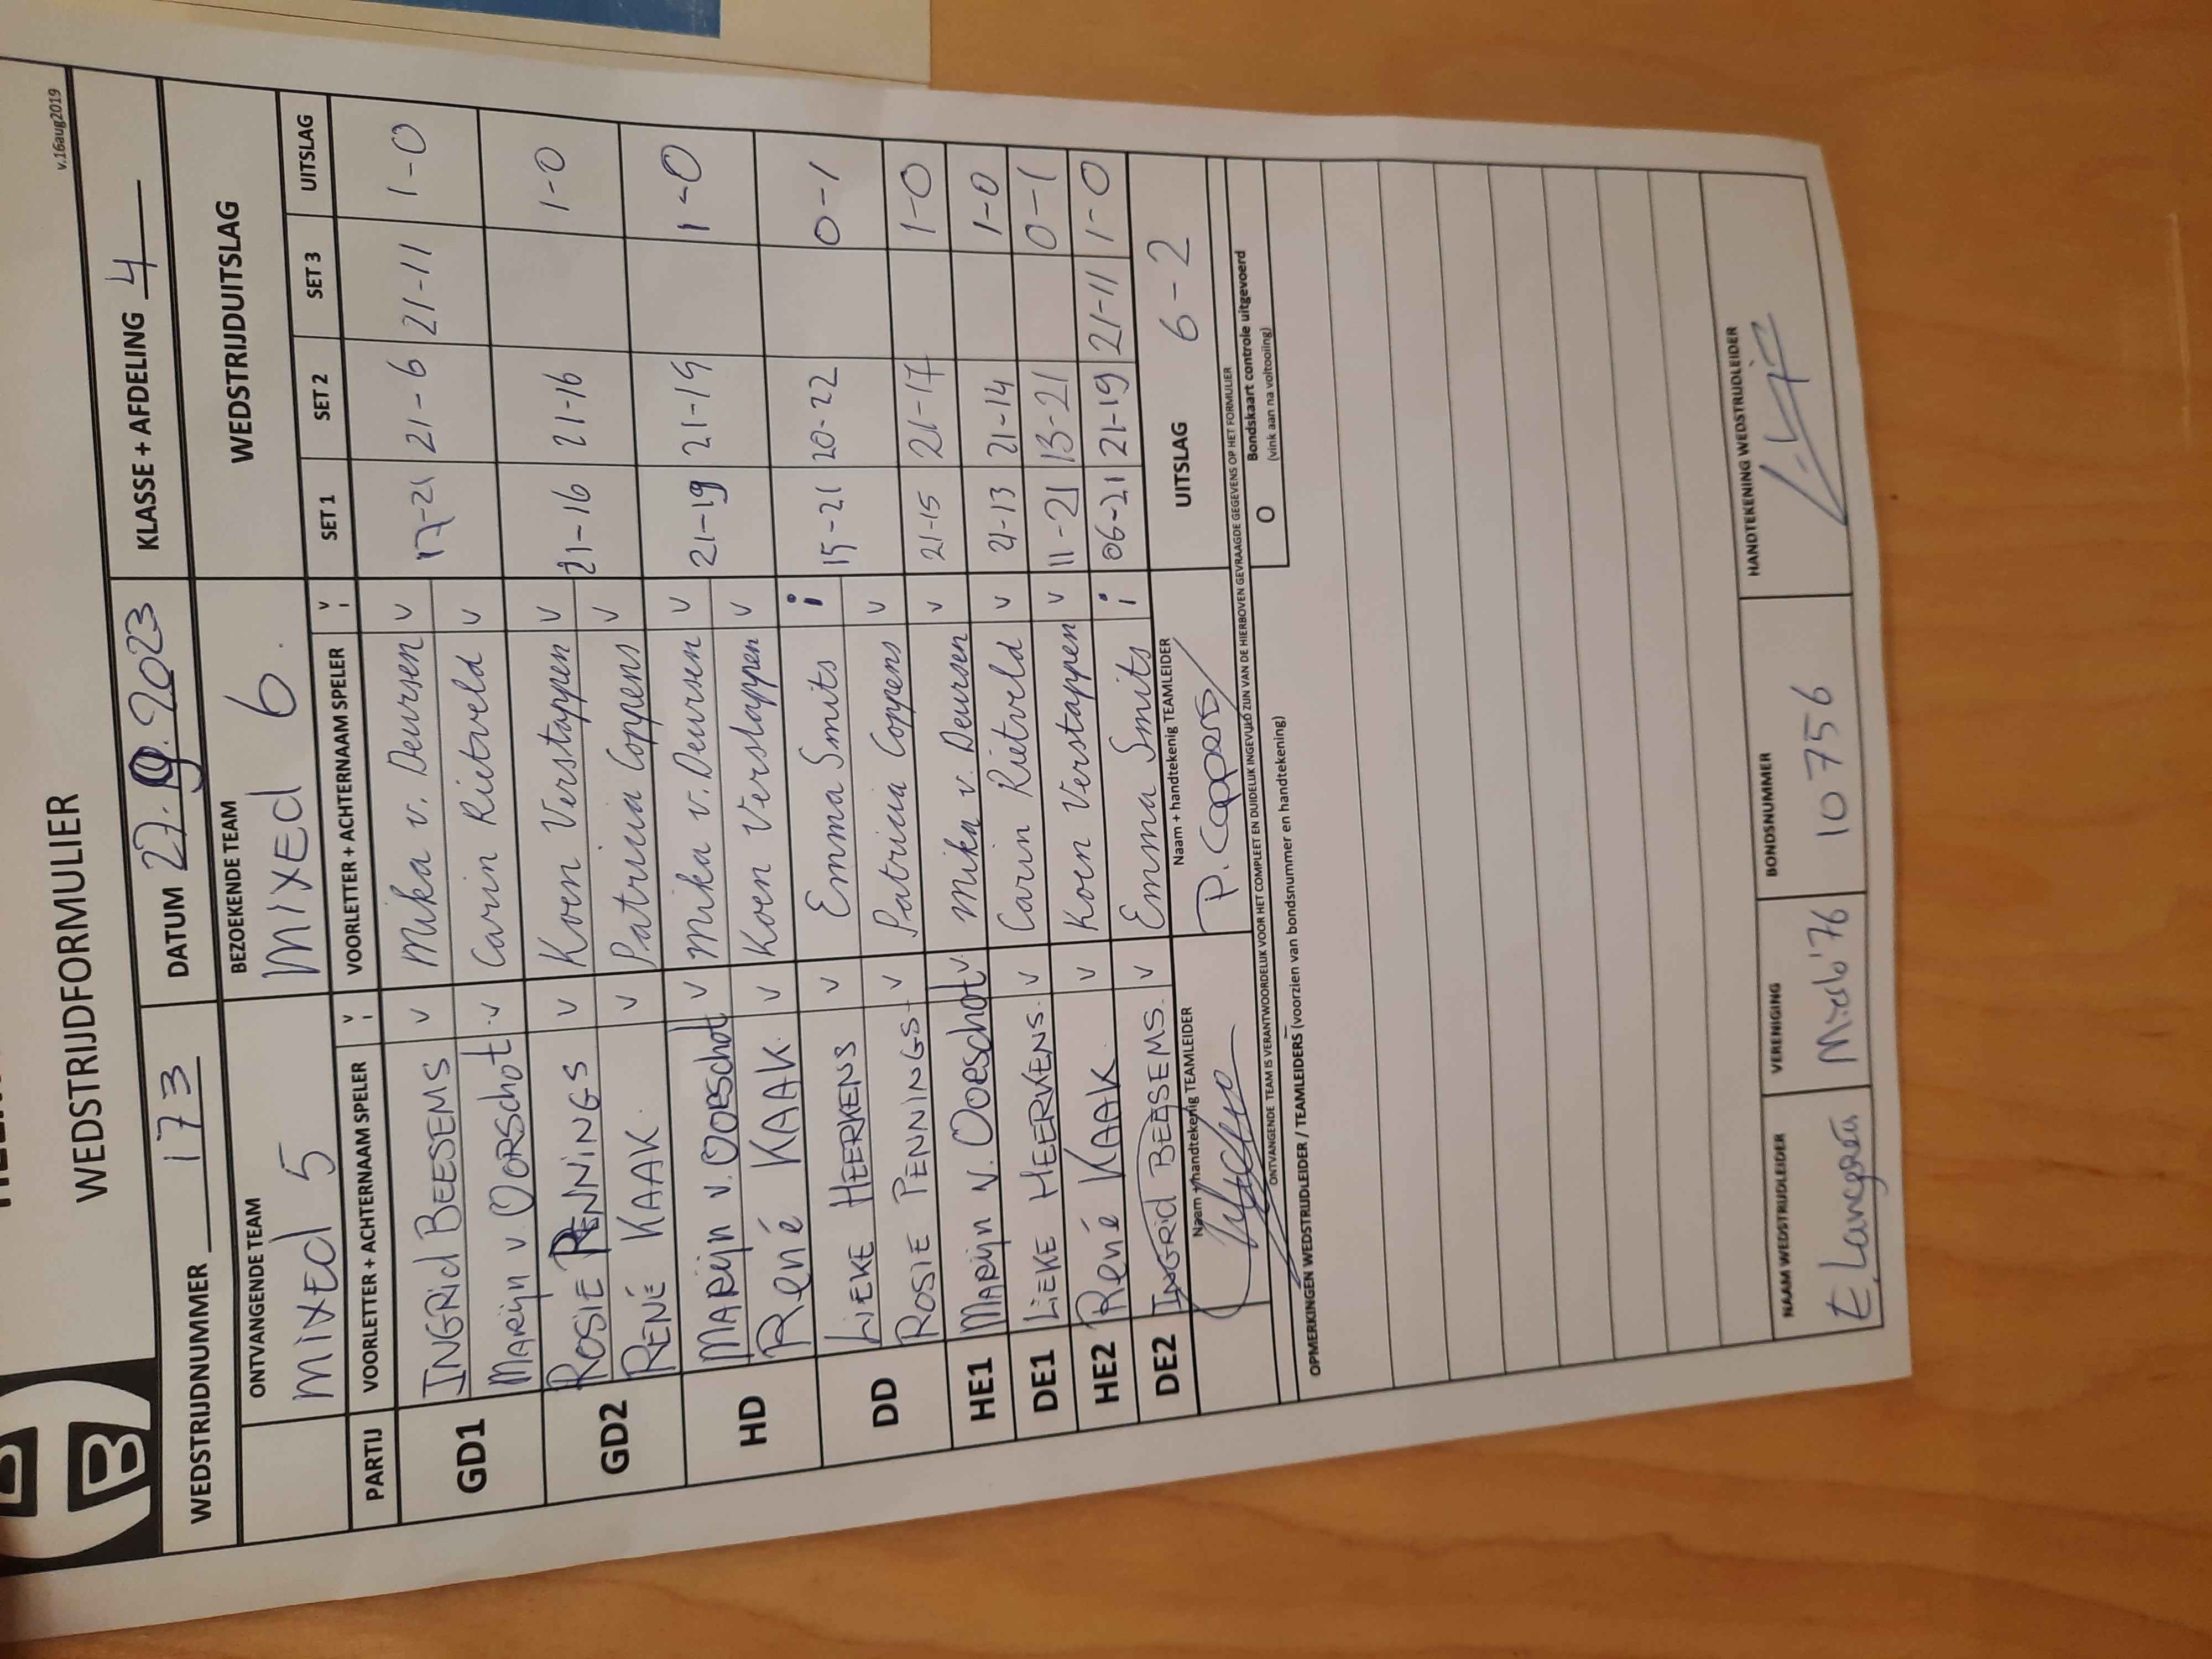 v.16aug2019
WEDSTRIJDFORMULIER
WEDSTRIJDNUMMER 173 DATUM 27.9.2023 KLASSE + AFDELING 4
ONTVANGENDE TEAM BEZOEKENDE TEAM WEDSTRIJDUITSLAG
MIXEd 5 MIXEd 6.
PARTIJ VOORLETTER + ACHTERNAAM SPELER V I VOORLETTER + ACHTERNAAM SPELER V I SET 1 SET 2 SET 3 UITSLAG
GD1 INGRid BEESEMS v Mika v. Deursen v 17-21 21-6 21-11 1-0
Marijn v Oorschot v Carin Rietveld v
GD2 ROSIE PENNINGS v Koen Verstappen v 21-16 21-16 1-0
RENÉ KAAK. v Patricia Coppens v
HD Marijn v. Ooeschot v Mika v. Deursen v 21-19 21-19 1-0
René KAAK. v Koen Verstappen v
DD LIEKE HEERKENS v Emma Smits i 15-21 20-22 0-1
ROSIE PENNINGS v Patricia Coppens v
HE1 Marijn v. Ooeschot v. Mika v. Deursen v 21-15 21-17 1-0
DE1 LIEKE HEERKENS. v Carin Rietveld v 21-13 21-14 1-0
HE2 René KAAK. v Koen Verstappen v 11-21 13-21 0-1
DE2 INGRid BEESEMS. v Emma Smits i 06-21 21-19 21-11 1-0
Naam + handtekenig TEAMLEIDER Naam + handtekenig TEAMLEIDER UITSLAG 6-2
P. Coppens
ONTVANGENDE TEAM IS VERANTWOORDELIJK VOOR HET COMPLEET EN DUIDELIJK INGEVULD ZIJN VAN DE HIERBOVEN GEVRAAGDE GEGEVENS OP HET FORMULIER
OPMERKINGEN WEDSTRIJDLEIDER / TEAMLEIDERS (voorzien van bondsnummer en handtekening)
O Bondskaart controle uitgevoerd
(vink aan na voltooiing)
NAAM WEDSTRIJDLEIDER VERENIGING BONDSNUMMER HANDTEKENING WEDSTRIJDLEIDER
Mierlo '76 10756